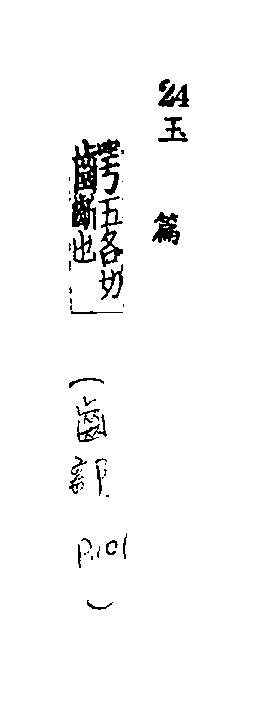 24
玉篇
咢五各切
齒断也
(齒部 P.101)